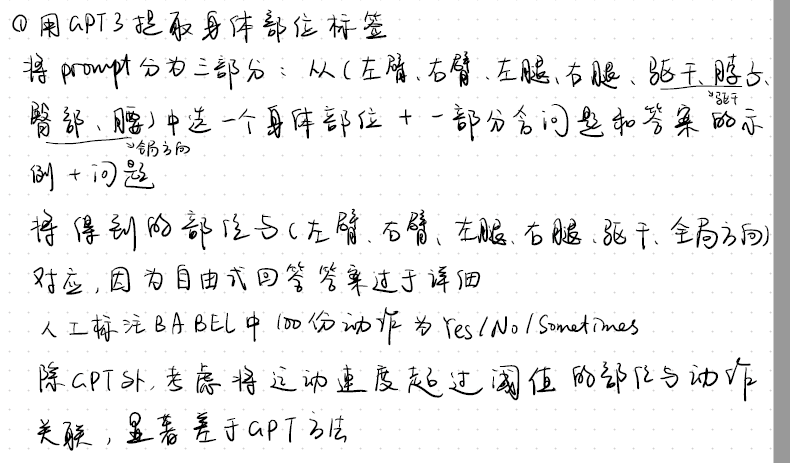 ①用GPT3提取身体部位标签
将prompt分为三部分：从(左臂、右臂、左腿、右腿、躯干、脖子、
→躯干
臀部、腰)中选一个身体部位+一部分含问题和答案的示
→全局方向
例+问题
将得到的部位与(左臂、右臂、左腿、右腿、躯干、全局方向)
对应,因为自由式回答答案过于详细
人工标注BABEL中100份动作为Yes/No/Sometimes
除GPT外,考虑将运动速度超过阈值的部位与动作
关联,显著差于GPT方法